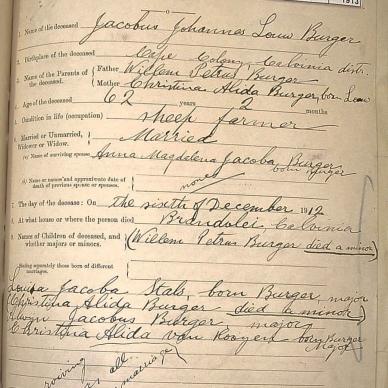 1913
1. Name of the deceased Jacobus Johannes Louw Burger
2. Birthplace of the deceased Cape Colony, Calvinia distr.
3. Names of the Parents of the deceased. Father Willem Petrus Burger
Mother Christina Alida Burger, born Louw
4. Age of the deceased 62 years 2 months
5. Condition in life (occupation) sheep farmer
6. Married or Unmarried, Widower or Widow. Married
(a) Name of surviving spouse. Anna Magdalena Jacoba Burger born Burger
(b) Name or names and approximate date of death of previous spouse or spouses. none
7. The day of the decease: On the sixth of December 1912
8. At what house or where the person died Calvinia
9. Names of Children of deceased, and whether majors or minors. (Willem Petrus Burger died a minor)
Stating separately those born of different marriages.
Jacoba born Burger, major
(Christina Alida Burger died a minor)
Jacobus Burger major
Christina Alida van Rooyen born Burger Major
all